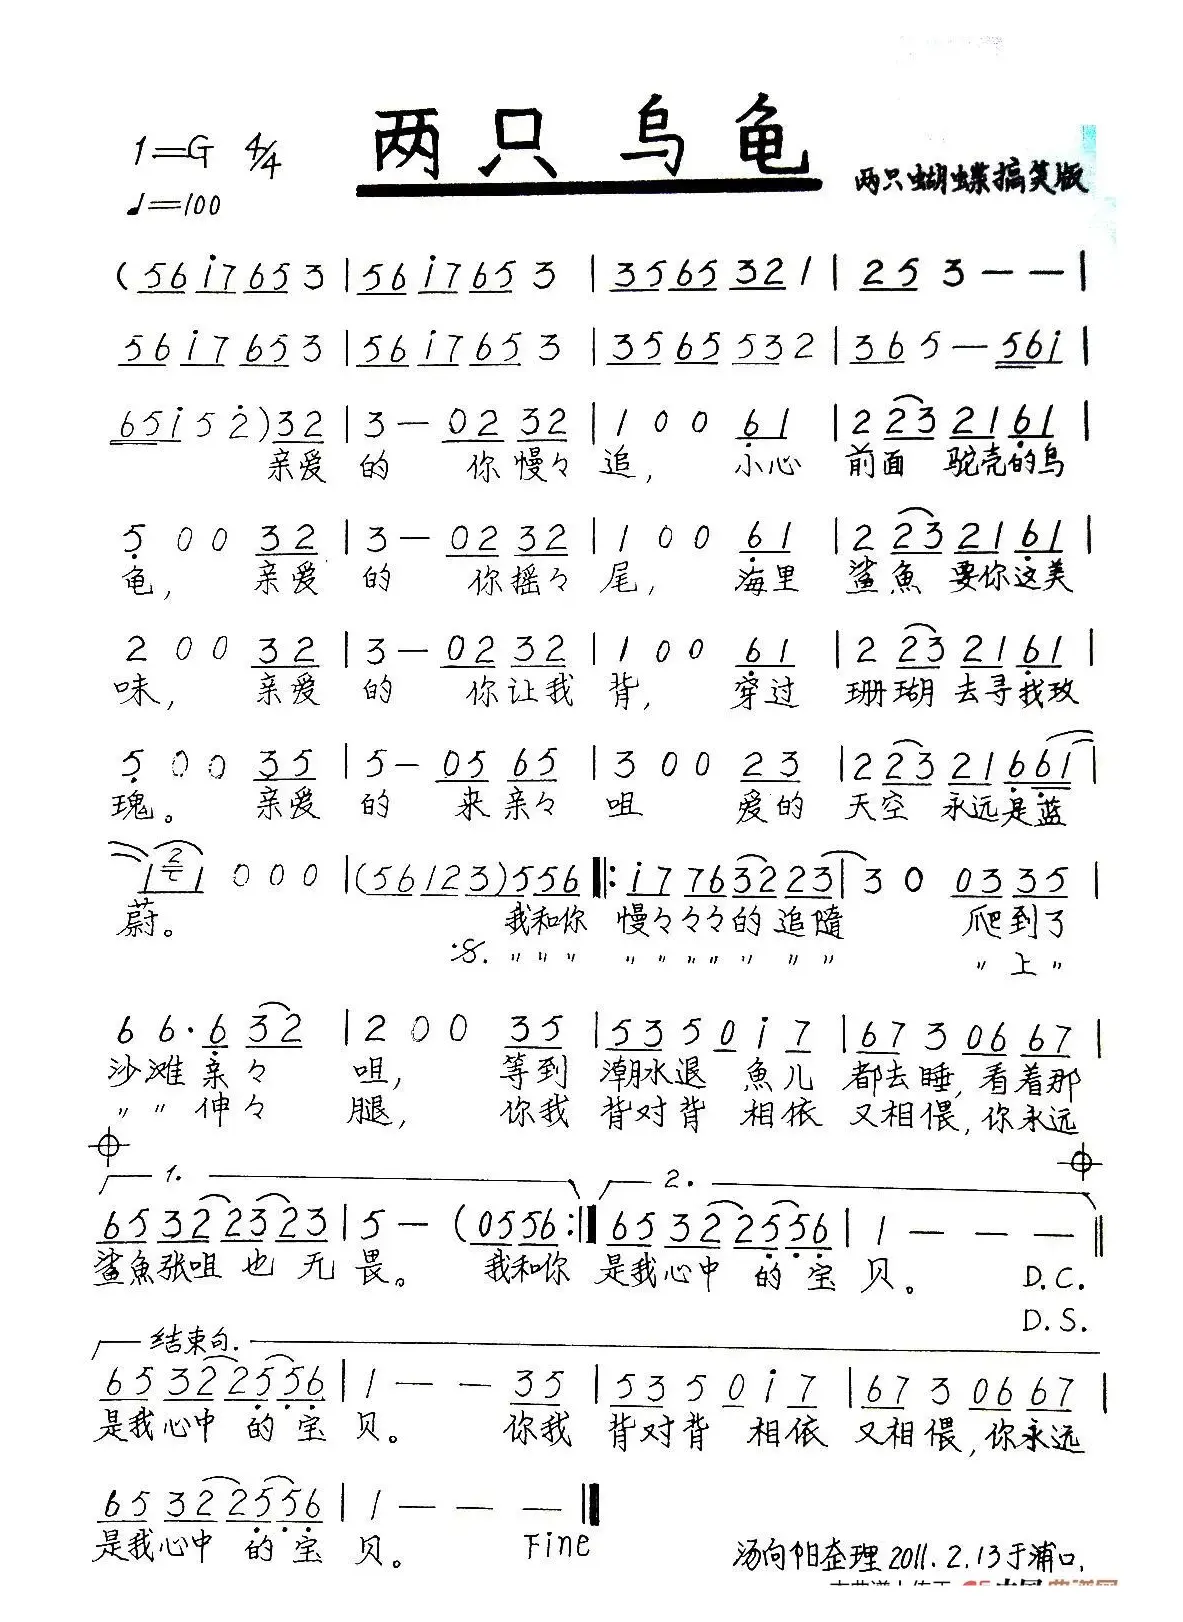 两只乌龟
1=G 4/4
两只蝴蝶搞笑版
♩=100
(56i7653 | 56i7653 | 3565321 | 253-- |
56i7653 | 56i7653 | 3565532 | 365-56i |
65i52)32 | 3-0232 | 10061 | 2232161 |
亲爱 的 你慢々 追, 小心 前面 驼壳的乌
50032 | 3-0232 | 10061 | 2232161 |
龟, 亲爱 的 你摇々 尾, 海里 鲨魚 要你这美
20032 | 3-0232 | 10061 | 2232161 |
味, 亲爱 的 你让我 背, 穿过 珊瑚 去寻找玫
50035 | 5-0565 | 30023 | 22321661 |
瑰。 亲爱 的 来亲々 咀 爱的 天空 永远是蓝
1 1000 | (56123)556 ‖: i7763223 | 300335 |
蔚。 我和你 慢々々々的追随 爬到了
𝄋. " " " " " " " " " " " 上 "
66·632 | 20035 | 5350i7 | 6730667 |
沙滩亲々 咀, 等到 潮水退 魚儿 都去睡, 看着那
" " 伸々 腿, 你我 背对背 相依 又相偎, 你永远
1. 2.
65322323 | 5-(0556 :‖ 65322556 | 1--- ‖
鲨魚张咀也无畏。 我和你 是我心中的宝 贝。 D.C.
D.S.
结束句.
65322556 | 1--35 | 5350i7 | 6730667 |
是我心中 的宝 贝。 你我 背对背 相依 又相偎, 你永远
65322556 | 1---‖
是我心中 的宝 贝。 Fine
汤向阳歪理2011.2.13于浦口.